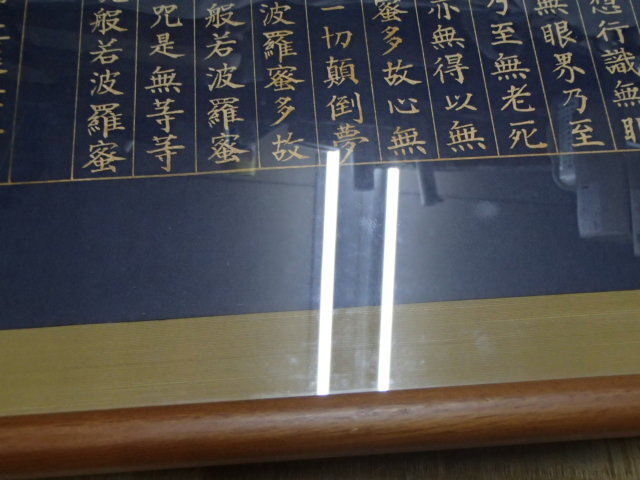 想行識無眼
無眼界乃至
乃至無老死
亦無得以無
蜜多故心無
一切顛倒夢
波羅蜜多故
般若波羅蜜
咒是無等等
般若波羅蜜